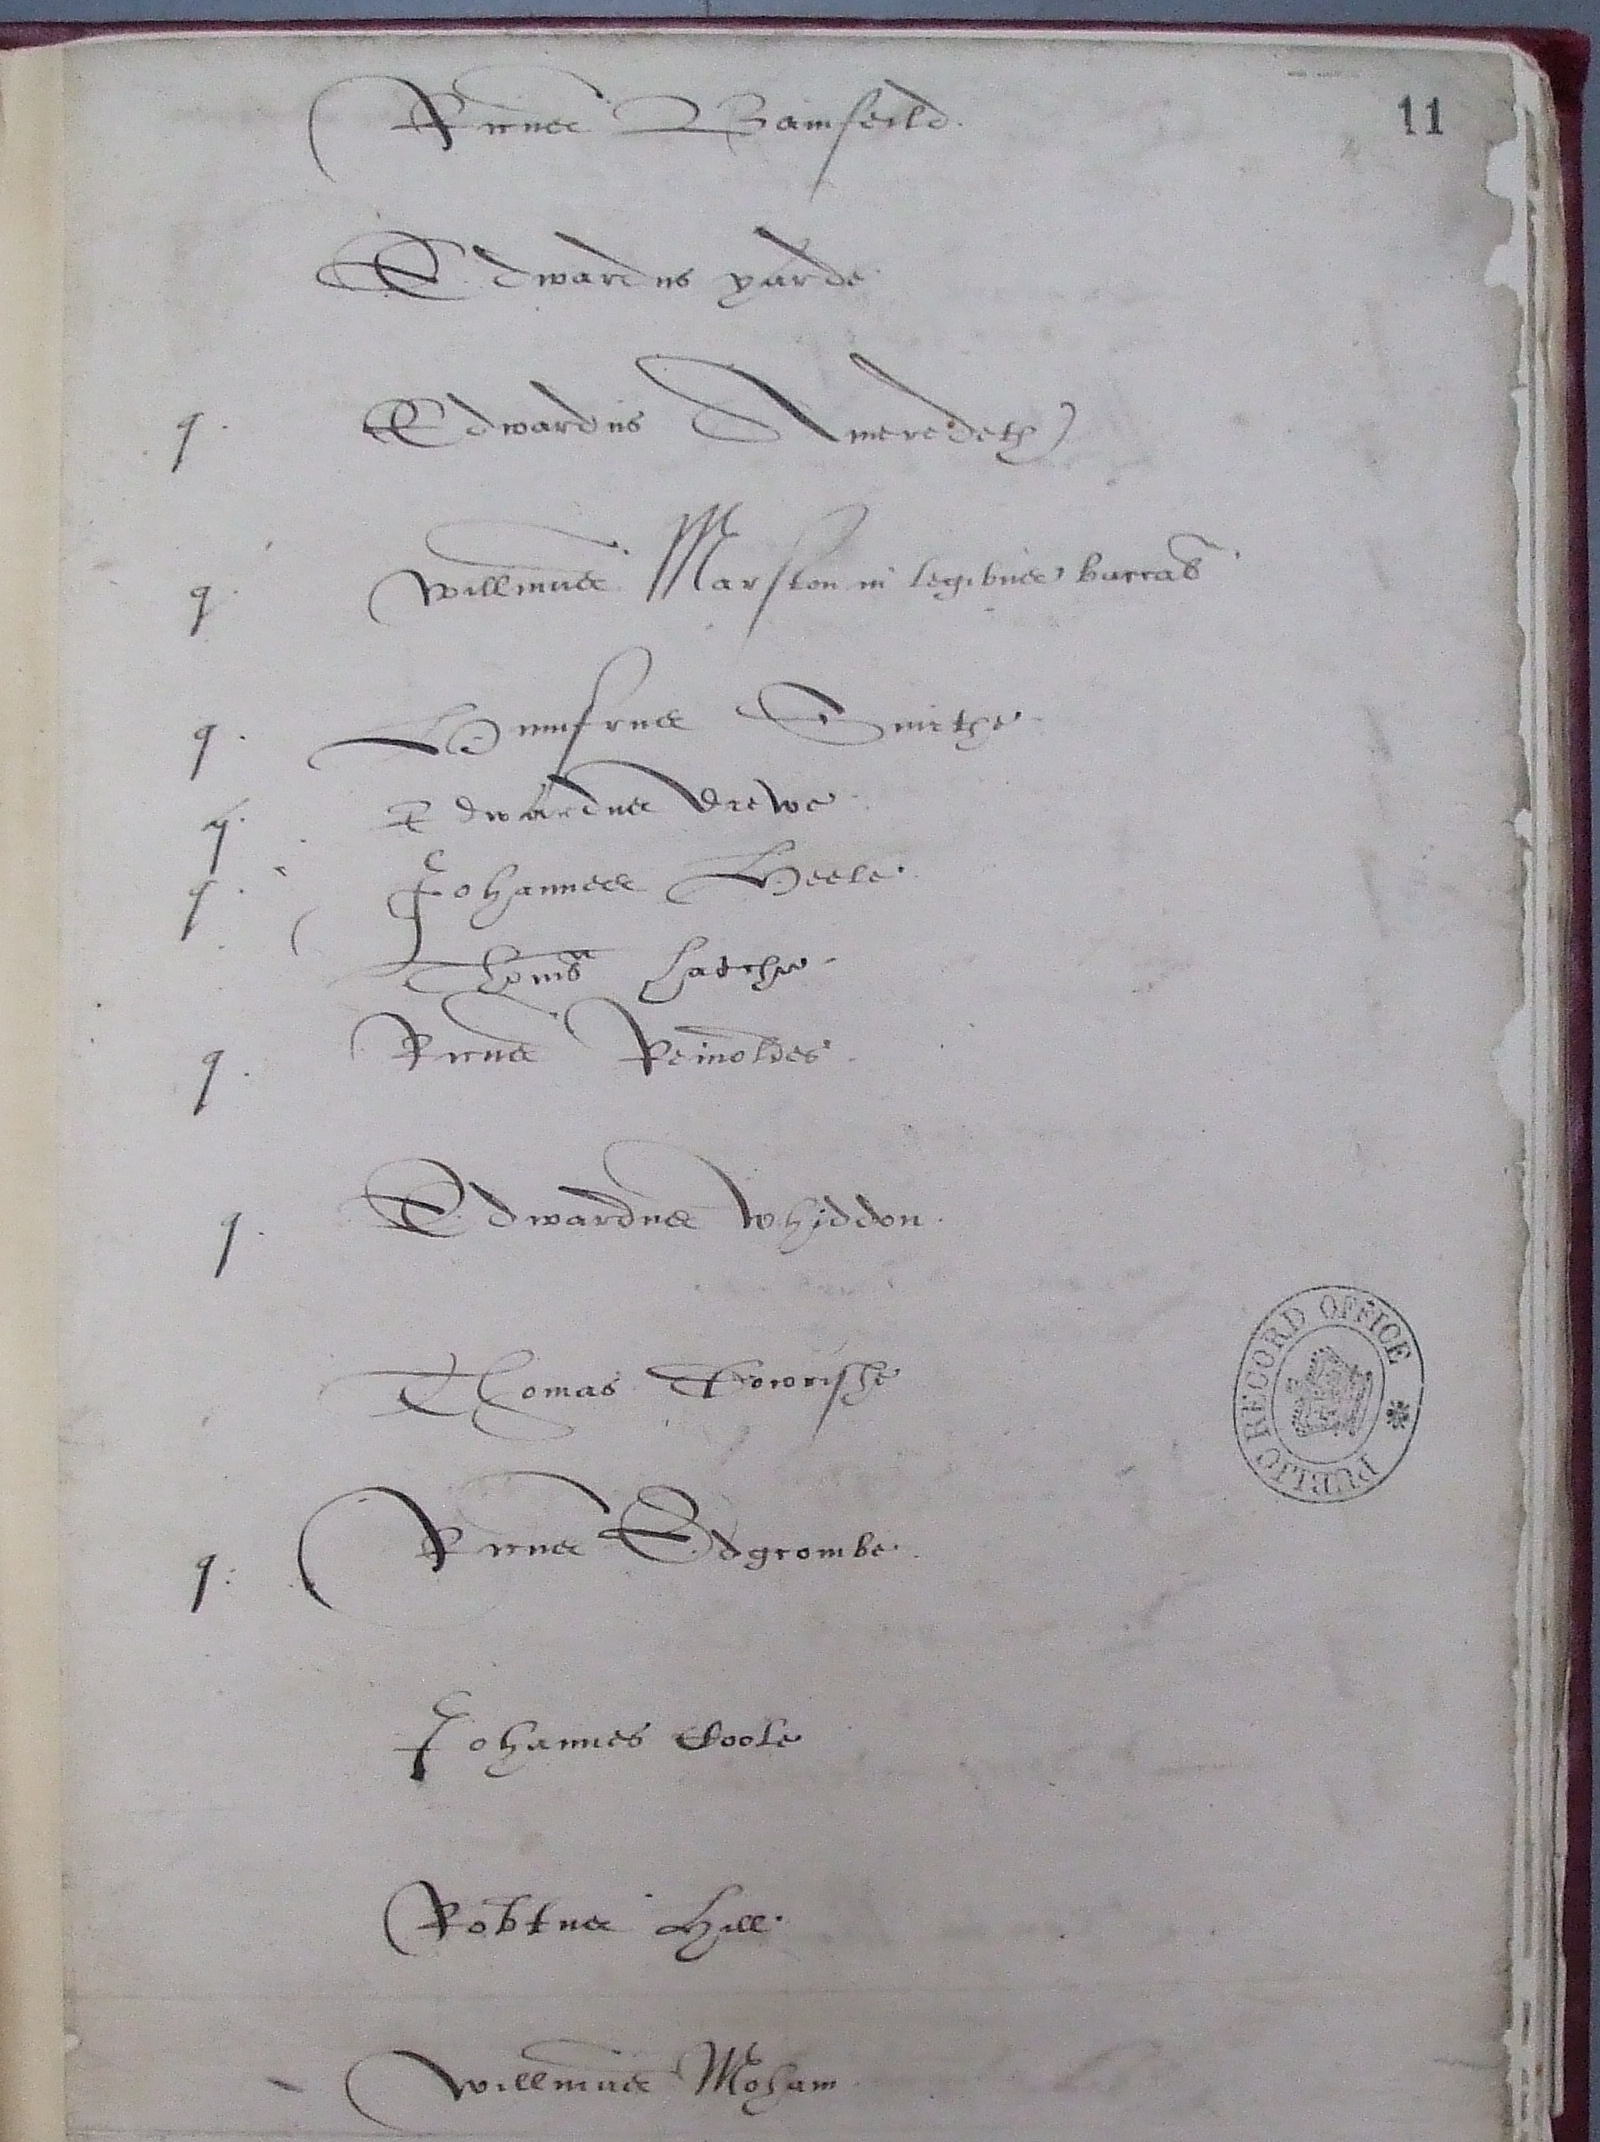 11
Ricus Bamfeild.
Edwardus yarde
q. Edwardus Ameredeth
q. Willimus Marston in legibus baccas
q. Humfrus Smithe
q. Edwardus Drewe
q. Johannes Heele.
Thoms Hatche
q. Ricus Reinoldes.
q. Edwardus Whiddon.
Thomas
q. Ricus Edgcombe.
Johannes Coole
Robtus Hill.
Willmus Moham
PUBLIC RECORD OFFICE